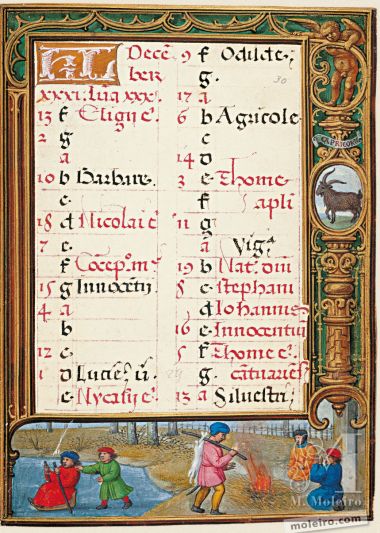 KL Decē
ber
xxxi. Lūa xxx.
13 f Eligii e.
2 g
a
10 b Barbare.
c
18 d Nicolai e.
7 e.
f Cōcepº. m.
15 g Innocētii
4 a
b
12 c
1 d Lucie. v.
e. Nycasii e.
9 f Odilde.
g.
17 a
6 b Agricole
c
14 d
3 e. Thome
f apli
11 g
a Vigª
19 b Nat. dni
8 c. stephani
d Iohannis
16 e. Innocentiū
5 f Thome e.
g. cātuarie
13 a Silvestri.
30
CAPRICORNUS
M. Moleiro
moleiro.com